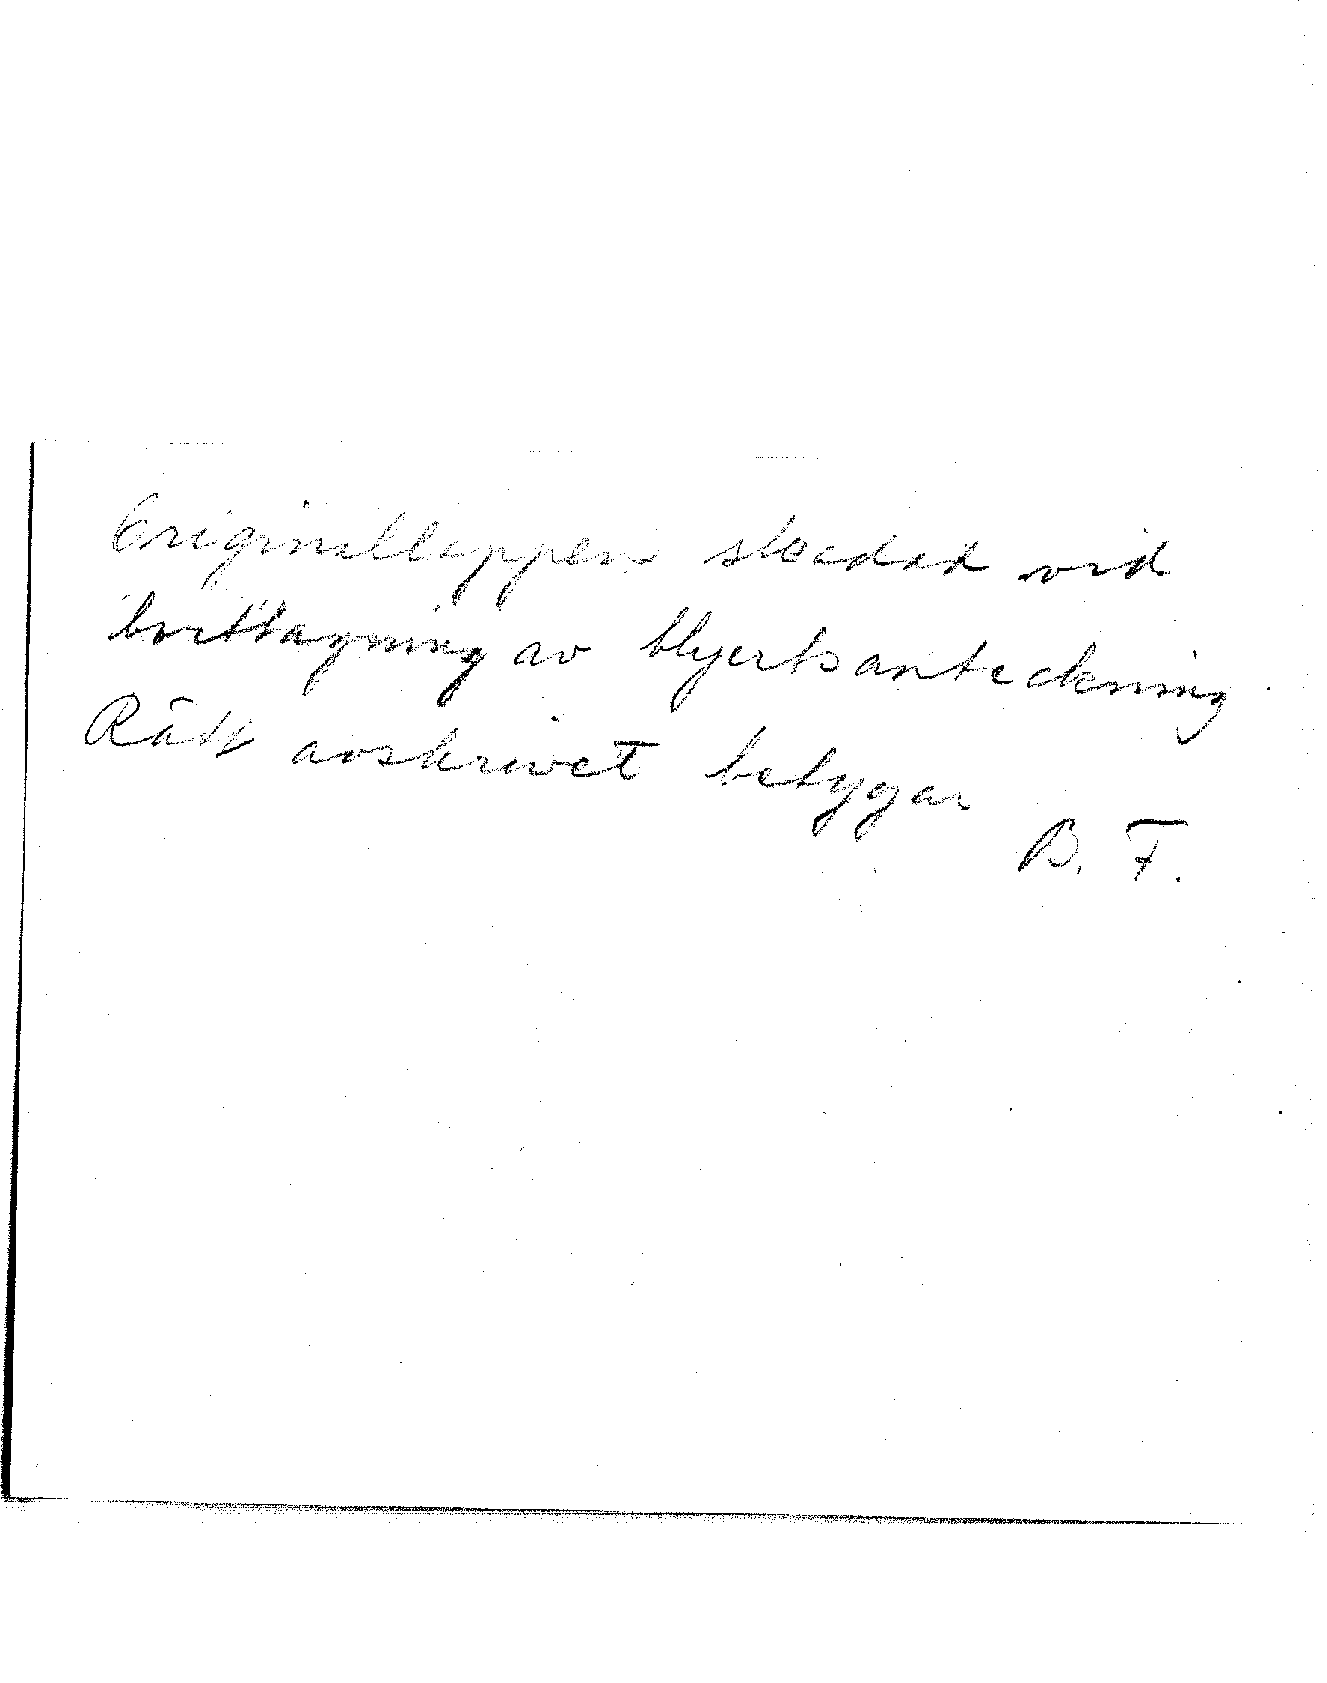 Originallappen skadad vid
borttagning av blyertsanteckning
Rätt avskrivet betygar
B. F.